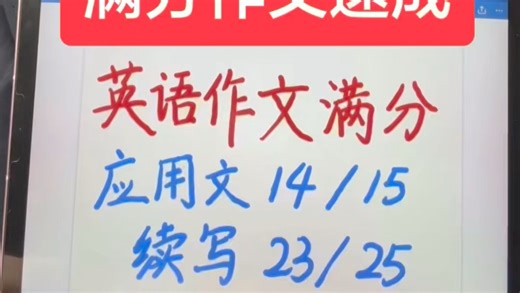 满分作文速成
英语作文满分
应用文 14/15
续写 23/25